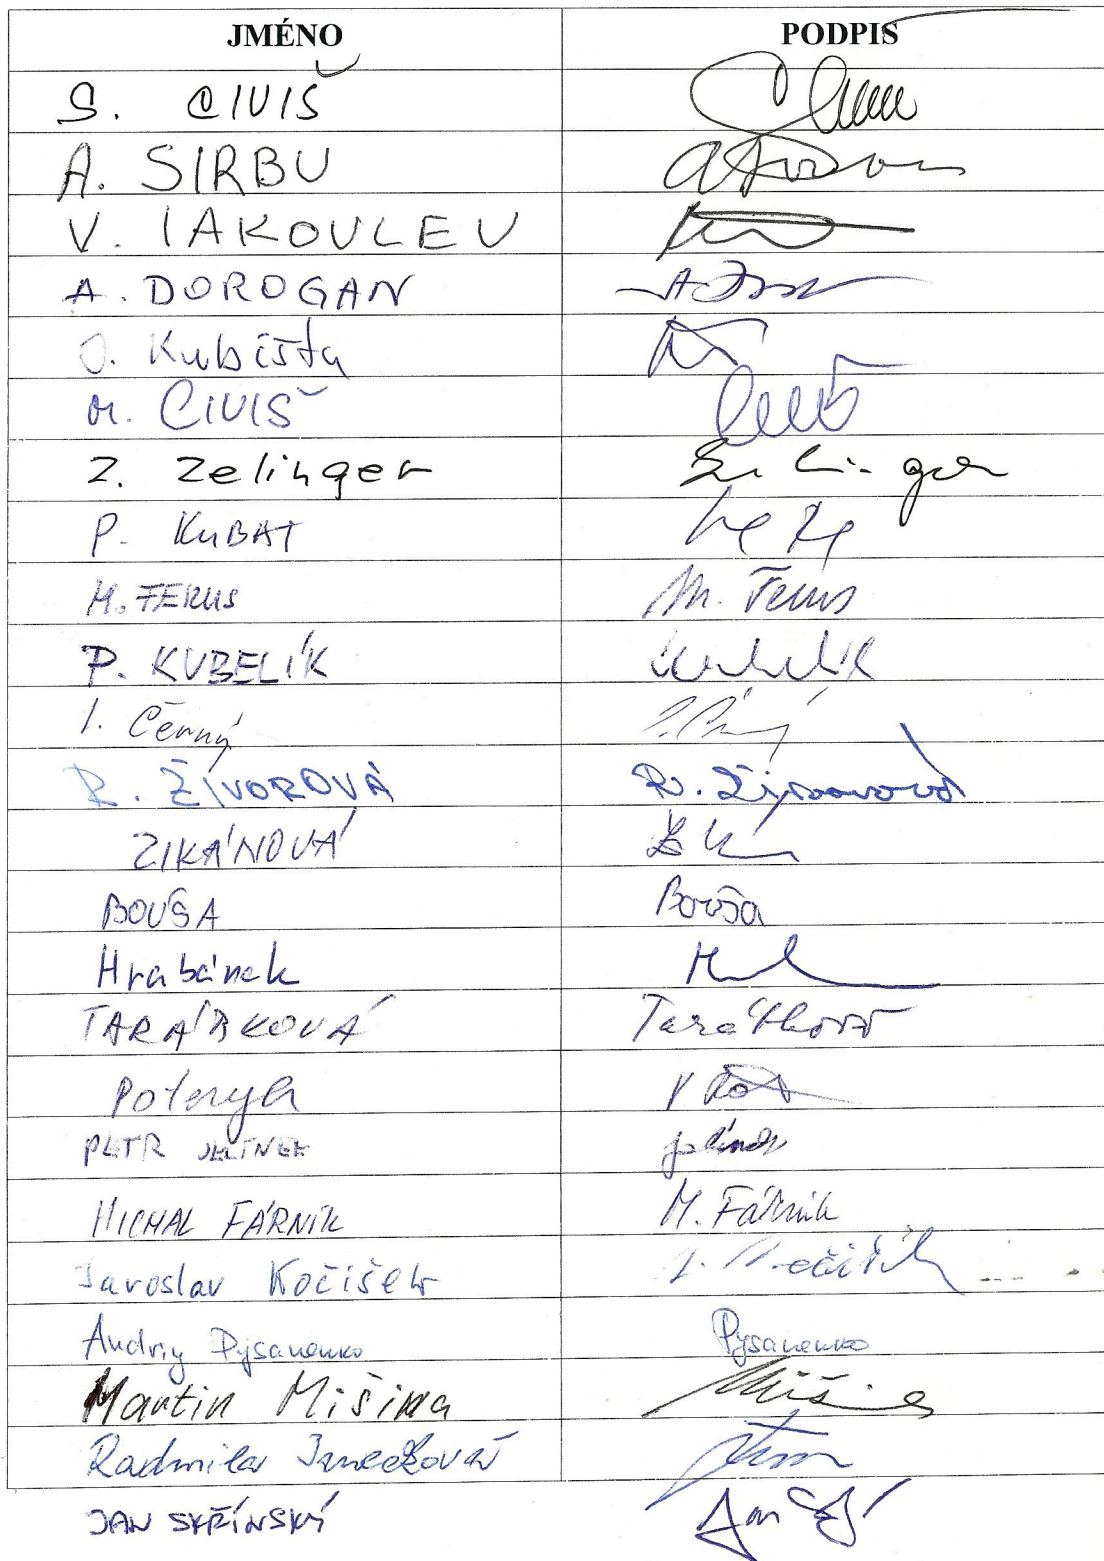 JMÉNO PODPIS
S. CIVIŠ
A. SIRBU
V. IAKOVLEV
A. DOROGAN
J. Kubišta
M. CIVIŠ
Z. Zelinger Zelinger
P. KUBÁT
M. FERUS M. Ferus
P. KUBELÍK Kubelík
I. Černý I. Černý
R. ŽIVOROVÁ R. Živorová
ZIKÁNOVÁ
BOUŠA Bouša
Hrabánek
TARÁBKOVÁ
Poterya
PETR JELÍNEK Jelínek
MICHAL FÁRNÍK M. Fárník
Jaroslav Kočišek J. Kočišek
Andriy Pysanenko Pysanenko
Martin Mišina
Radmila Janečková
JAN SKŘÍNSKÝ